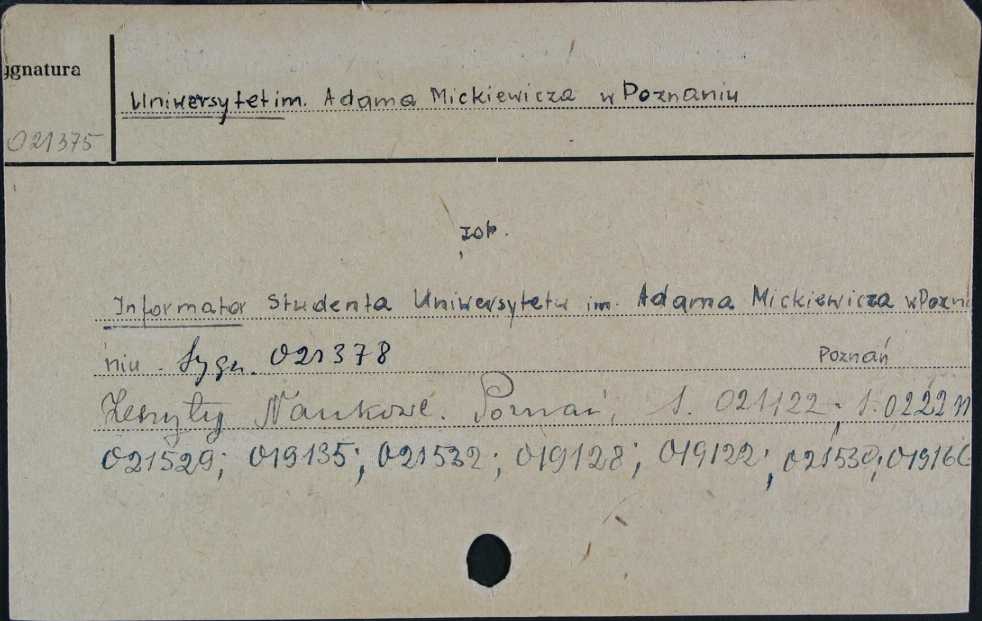 ygnatura
Uniwersytet im. Adama Mickiewicza w Poznaniu
021375
zob.
Informator Studenta Uniwersytetu im. Adama Mickiewicza w Pozn
niu. Sygn. 021378 Poznań
Zeszyty Naukowe. Poznań, S. 021122; S.
021529; 019135; 021532; 019128; 019122; 021530;